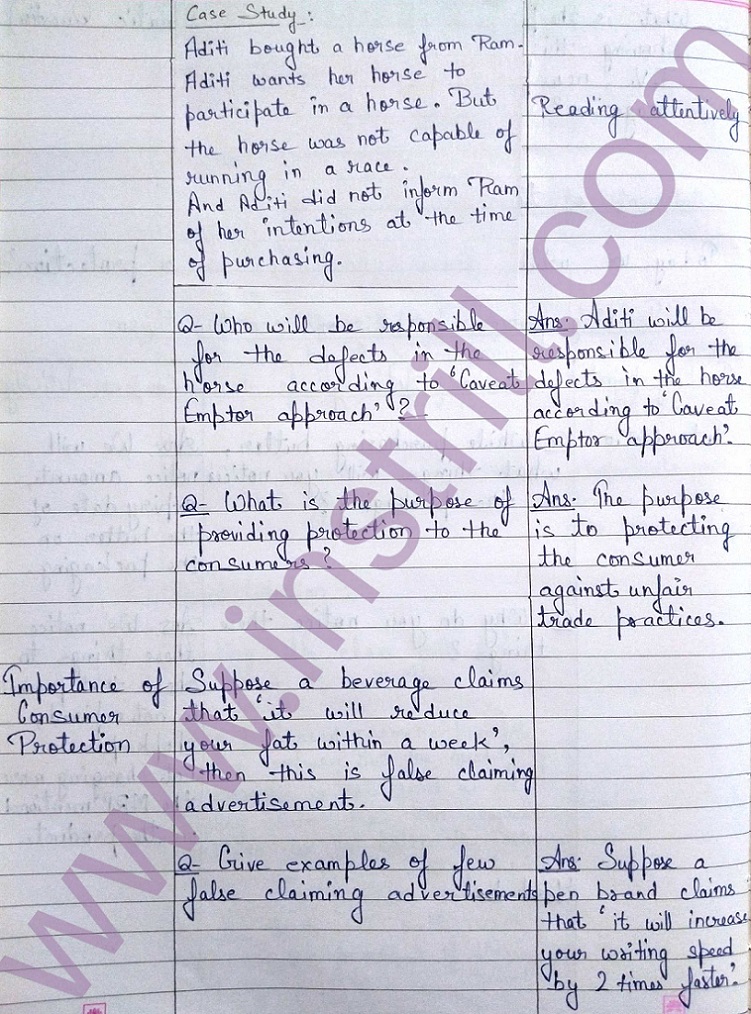 Case Study :
Aditi bought a horse from Ram.
Aditi wants her horse to
participate in a horse. But
the horse was not capable of
running in a race.
And Aditi did not inform Ram
of her intentions at the time
of purchasing.
Reading attentively
Q- Who will be responsible
for the defects in the
horse according to 'Caveat
Emptor approach' ?
Ans. Aditi will be
responsible for the
defects in the horse
according to 'Caveat
Emptor approach'.
Q- What is the purpose of
providing protection to the
consumers ?
Ans. The purpose
is to protecting
the consumer
against unfair
trade practices.
Importance of
Consumer
Protection
Suppose a beverage claims
that 'it will reduce
your fat within a week',
then this is false claiming
advertisement.
Q- Give examples of few
false claiming advertisements
Ans. Suppose a
pen brand claims
that 'it will increase
your writing speed
by 2 times faster'.
www.instrill.com